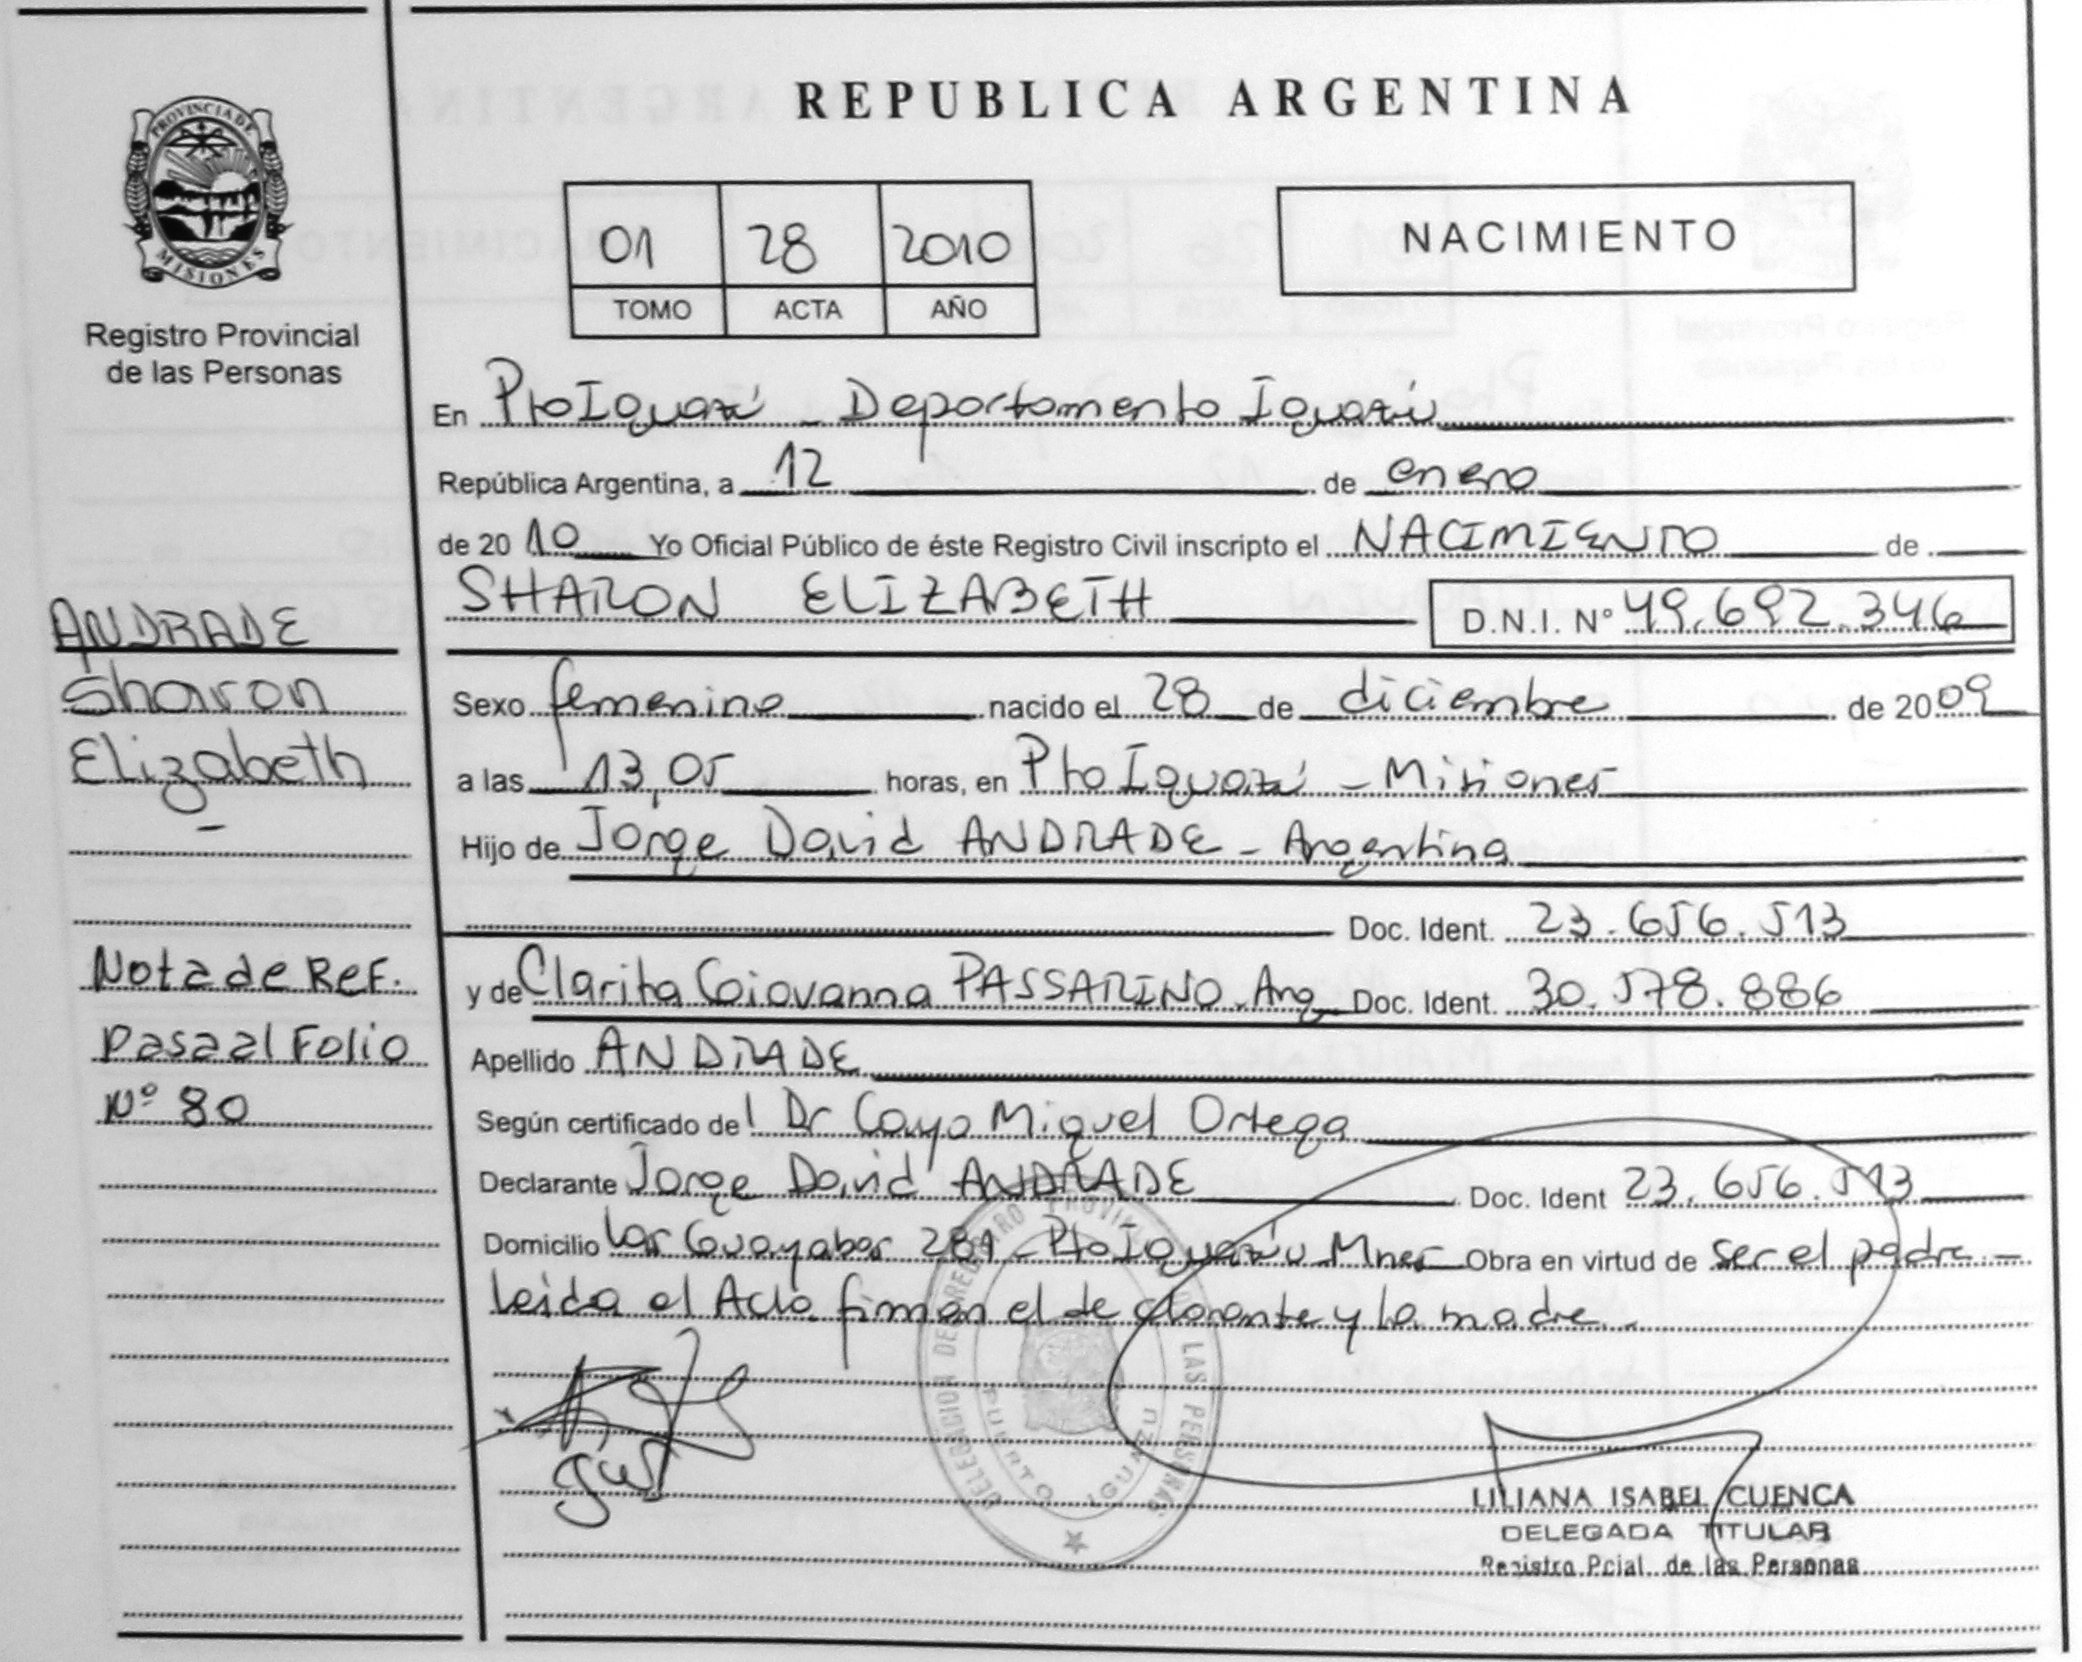 PROVINCIA DE
MISIONES
Registro Provincial
de las Personas
ANDRADE
Sharon
Elizabeth
-
Nota de Ref.
Pasa al Folio
Nº 80
REPUBLICA ARGENTINA
01 28 2010
TOMO ACTA AÑO
NACIMIENTO
En Pto Iguazú - Departamento Iguazú
República Argentina, a 12 de enero
de 2010 Yo Oficial Público de éste Registro Civil inscripto el NACIMIENTO de
SHARON ELIZABETH D.N.I. Nº 49.692.346
Sexo femenino nacido el 28 de diciembre de 2009
a las 13,05 horas, en Pto Iguazú - Misiones
Hijo de Jorge David ANDRADE - Argentina
Doc. Ident. 23.656.513
y de Clarita Giovanna PASSARINO - Arg Doc. Ident. 30.578.886
Apellido ANDRADE
Según certificado del Dr Cayo Miguel Ortega
Declarante Jorge David ANDRADE Doc. Ident 23.656.513
Domicilio Los Guayabos 281 - Pto Iguazú Mnes Obra en virtud de ser el padre -
Leida el Acta firman el declarante y la madre -
DELEGACION DEL REGISTRO PROVINCIAL DE LAS PERSONAS
PUERTO IGUAZU
LILIANA ISABEL CUENCA
DELEGADA TITULAR
Registro Pcial. de las Personas